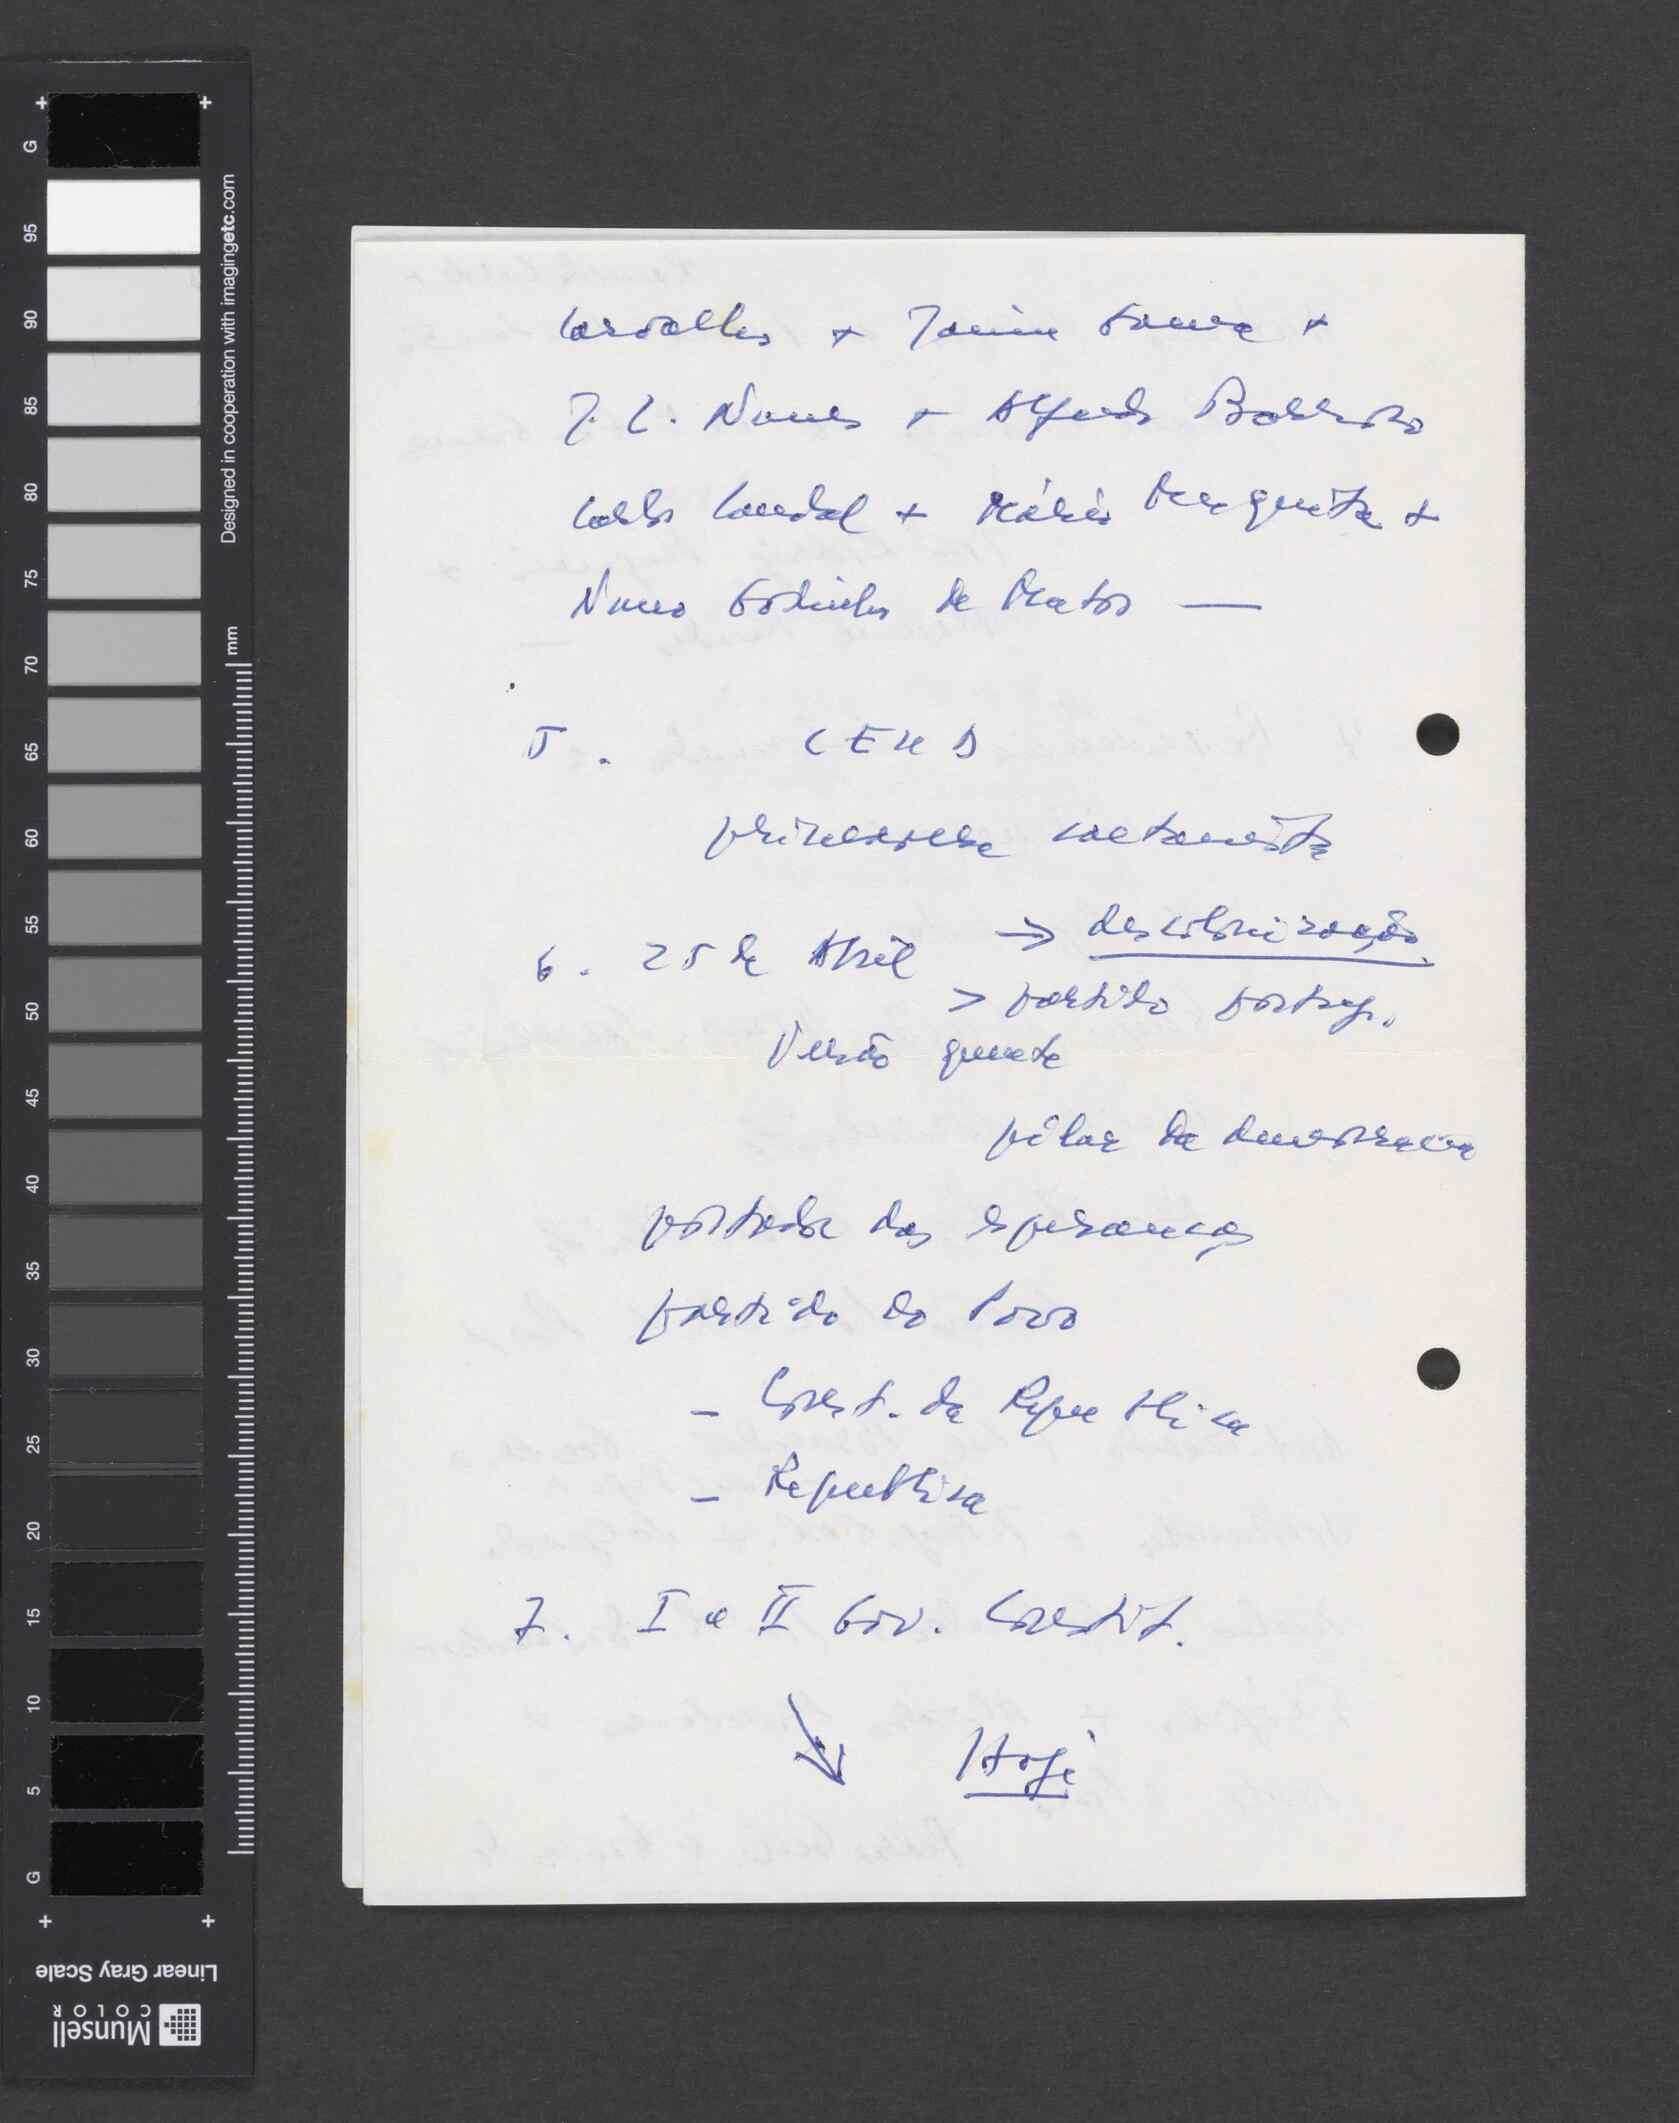 Carvalho + Jaime Gama +
J. L. Nunes + Alfredo Barroso
Carlos Candal + Mário Mesquita +
Nuno Godinho de Matos —
5. CEUD
primavera caetanista
6. 25 de Abril → descolonização
> partido portug.
Verão quente
pilar da democracia
portador das esperanças
partido do Povo
– Const. da República
– República
7. I e II Gov. Constit.
↘ Hoje
G
95
90
85
80
75
70
65
60
55
50
45
40
35
30
25
20
15
10
5
G
Designed in cooperation with imagingetc.com
mm
Linear Gray Scale
Munsell
COLOR